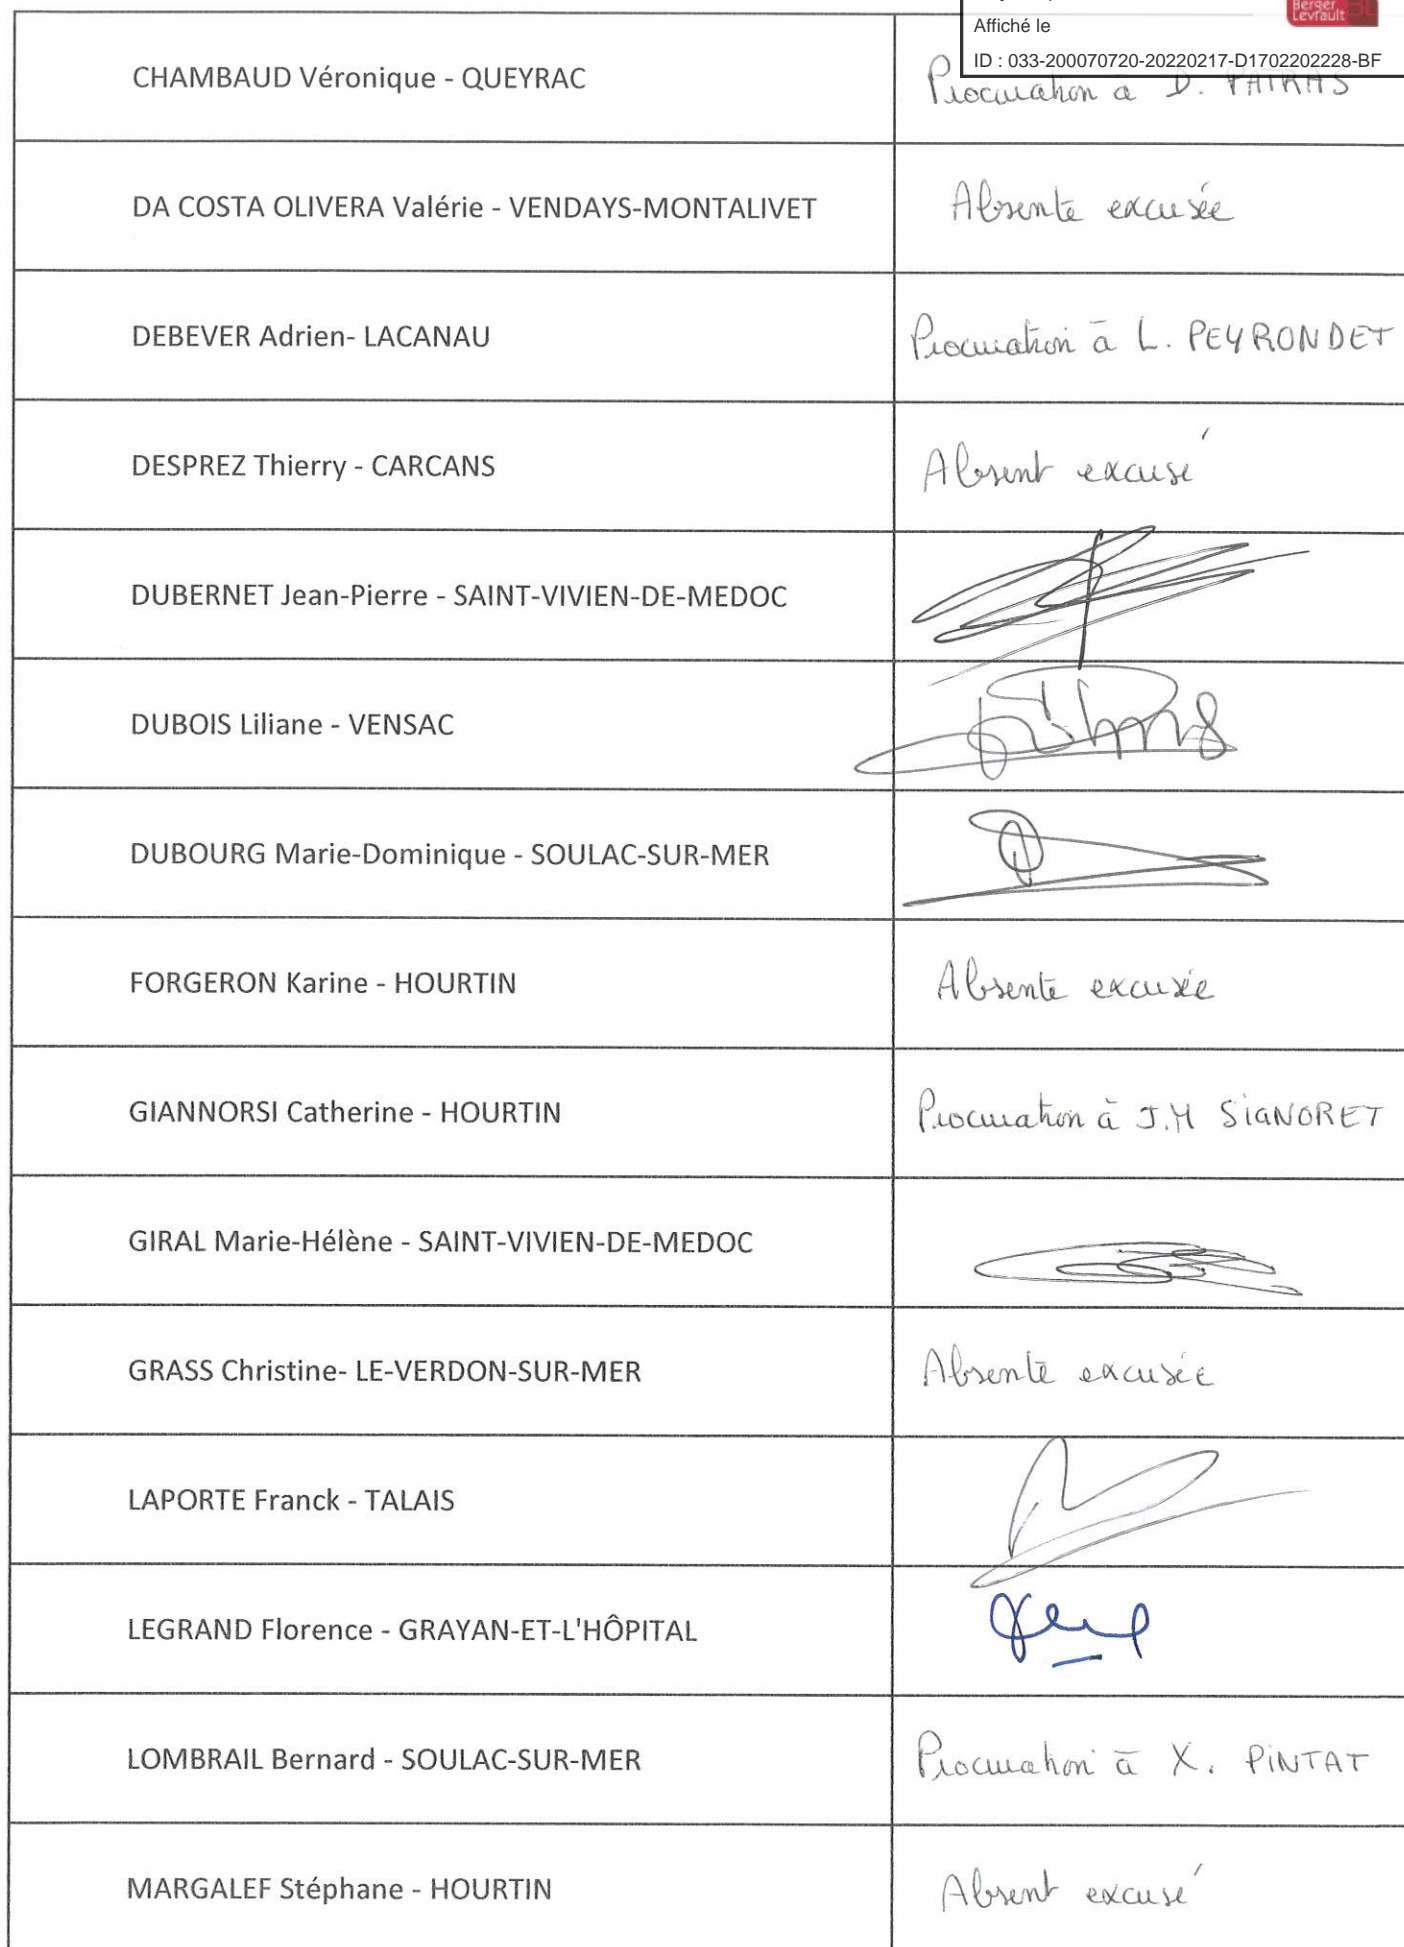 Berger
Levrault
Affiché le
ID : 033-200070720-20220217-D1702202228-BF
CHAMBAUD Véronique - QUEYRAC
Procuration à D. PATRAS
DA COSTA OLIVERA Valérie - VENDAYS-MONTALIVET
Absente excusée
DEBEVER Adrien- LACANAU
Procuration à L. PEYRONDET
DESPREZ Thierry - CARCANS
Absent excusé
DUBERNET Jean-Pierre - SAINT-VIVIEN-DE-MEDOC
DUBOIS Liliane - VENSAC
DUBOURG Marie-Dominique - SOULAC-SUR-MER
FORGERON Karine - HOURTIN
Absente excusée
GIANNORSI Catherine - HOURTIN
Procuration à J.M SIGNORET
GIRAL Marie-Hélène - SAINT-VIVIEN-DE-MEDOC
GRASS Christine- LE-VERDON-SUR-MER
Absente excusée
LAPORTE Franck - TALAIS
LEGRAND Florence - GRAYAN-ET-L'HÔPITAL
LOMBRAIL Bernard - SOULAC-SUR-MER
Procuration à X. PINTAT
MARGALEF Stéphane - HOURTIN
Absent excusé